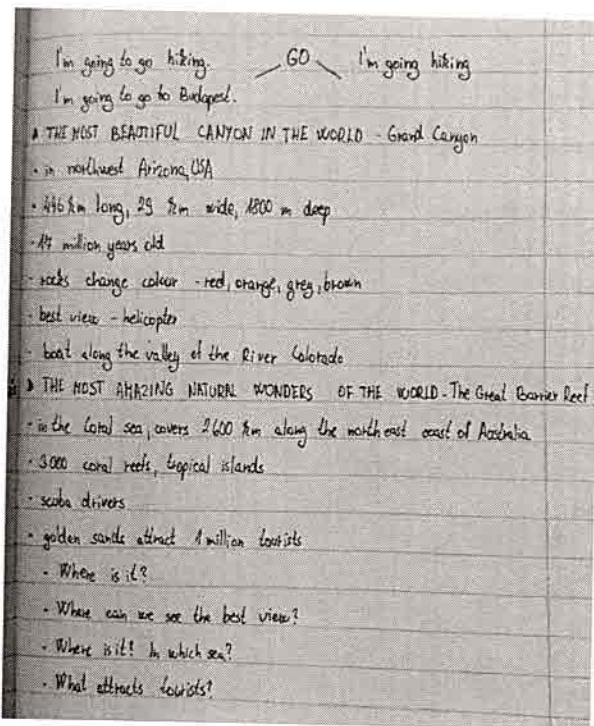 I'm going to go hiking. GO I'm going hiking
I'm going to go to Budapest.
THE MOST BEAUTIFUL CANYON IN THE WORLD - Grand Canyon
• in northwest Arizona, USA
• 446 km long, 29 km wide, 1800 m deep
• 17 million years old
- rocks change colour - red, orange, grey, brown
- best view - helicopter
- boat along the valley of the River Colorado
THE MOST AMAZING NATURAL WONDERS OF THE WORLD - The Great Barrier Reef
- in the Coral sea, covers 2600 km along the northeast coast of Australia
• 3000 coral reefs, tropical islands
- scuba drivers
- golden sands attract 1 million tourists
- Where is it?
- Where can we see the best view?
- Where is it? In which sea?
- What attracts tourists?